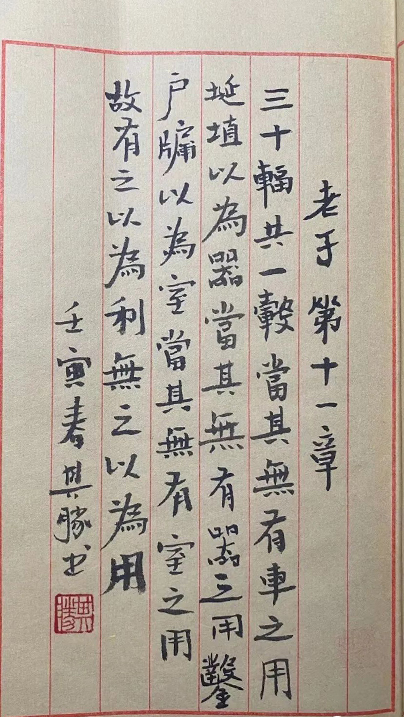 老子第十一章
三十輻共一轂當其無有車之用
埏埴以為器當其無有器之用鑿
戶牖以為室當其無有室之用
故有之以為利無之以為用
壬寅春其勝书